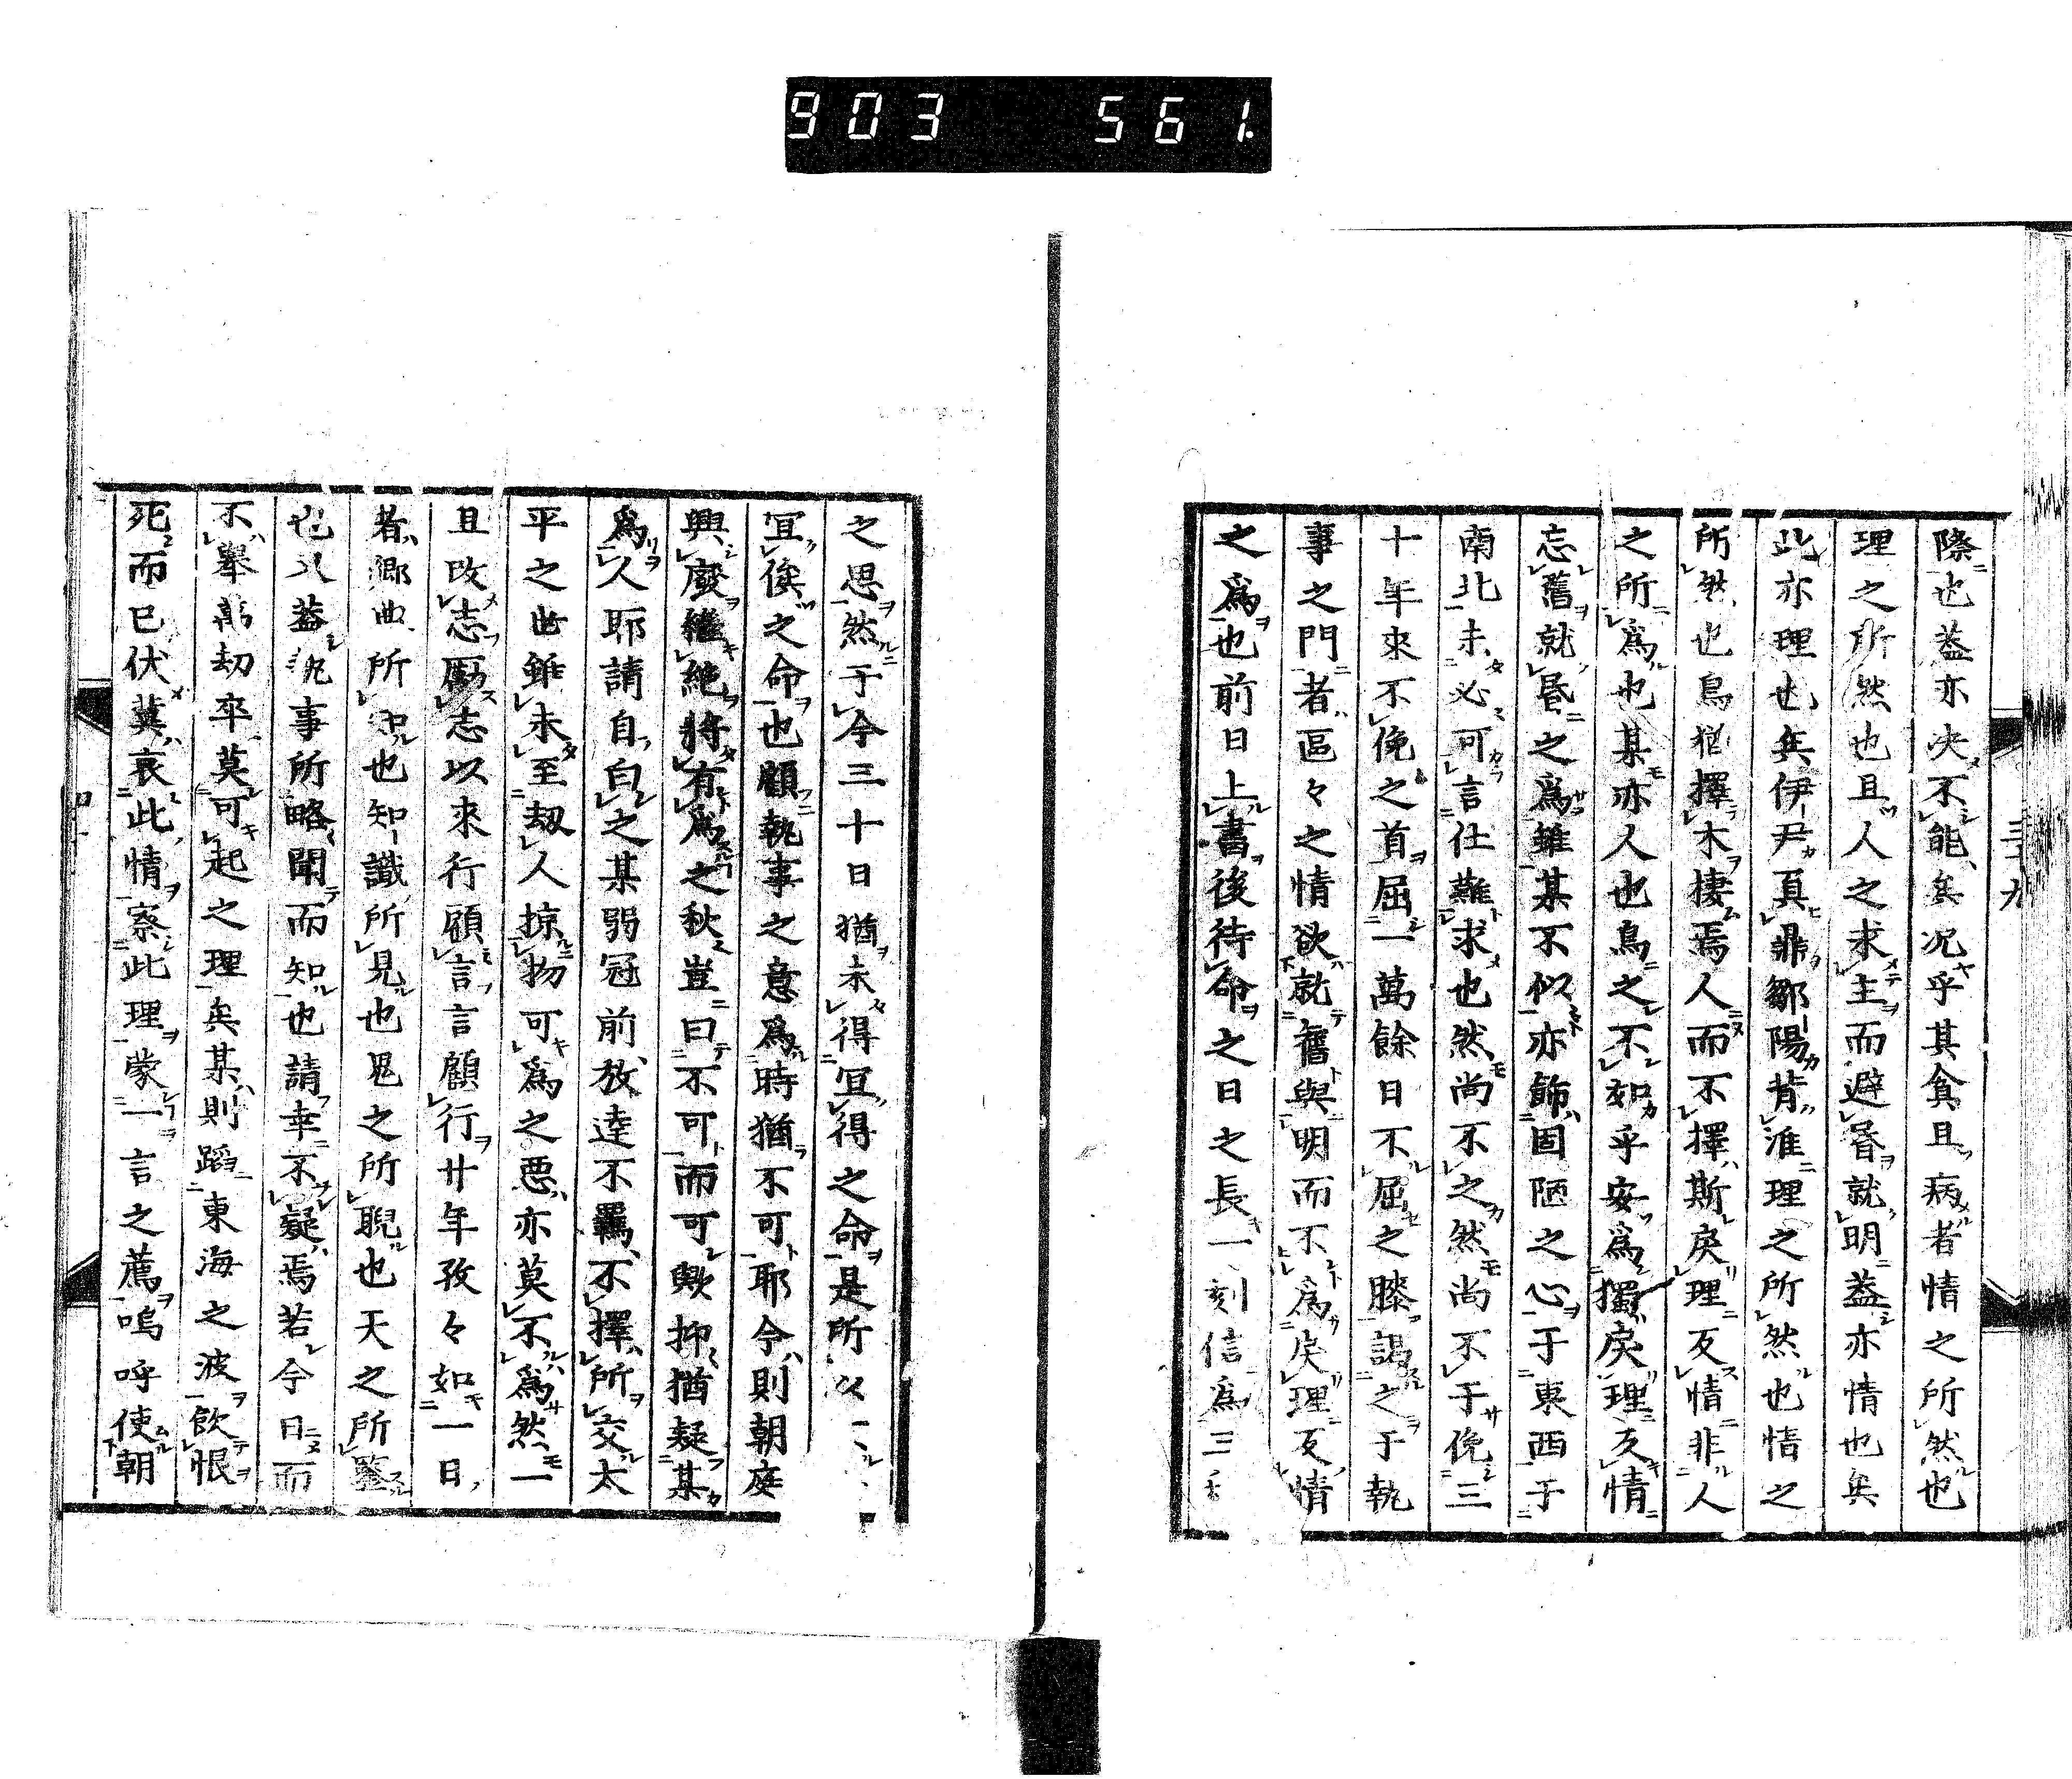 903 561.
際也蓋亦决不能矣况乎其貧且病者情之所然也
理之所然也且人之求主而避昏就明蓋亦情也矣
此亦理也矣伊尹負鼎鄒陽背淮理之所然也情之
所然也鳥猶擇木棲焉人而不擇斯戾理反情非人
之所爲也某亦人也鳥之不如乎安爲獨戾理反情
忘舊就昏之爲雖某不似亦飾固陋之心于東西于
南北未必可言仕難求也然尚不之然尚不于俛三
十年來不俛之首屈一萬餘日不屈之膝謁之于執
事之門者區々之情欲就舊與明而不爲戾理反情
之爲也前日上書後待命之日之長一刻信爲三
之思然于今三十日猶未得冝得之命是所以
冝俟之命也顧執事之意爲時猶不可耶今則朝庭
興廢繼絶將有爲之秋豈曰不可而可歟抑猶疑某
爲人耶請自白之某弱冠前放達不羈不擇所交太
平之世雖未至刼人掠物可爲之悪亦莫不爲然一
且改志勵志以來行顧言言顧行廿年孜々如一日
者郷曲所也知識所見也鬼之所睨也天之所鑒
也以蓋執事所略聞而知也請幸不疑焉若今日而
不舉萬刧卒莫可起之理矣某則蹈東海之波飲恨
死而已伏冀哀此情察此理蒙一言之薦嗚呼使朝